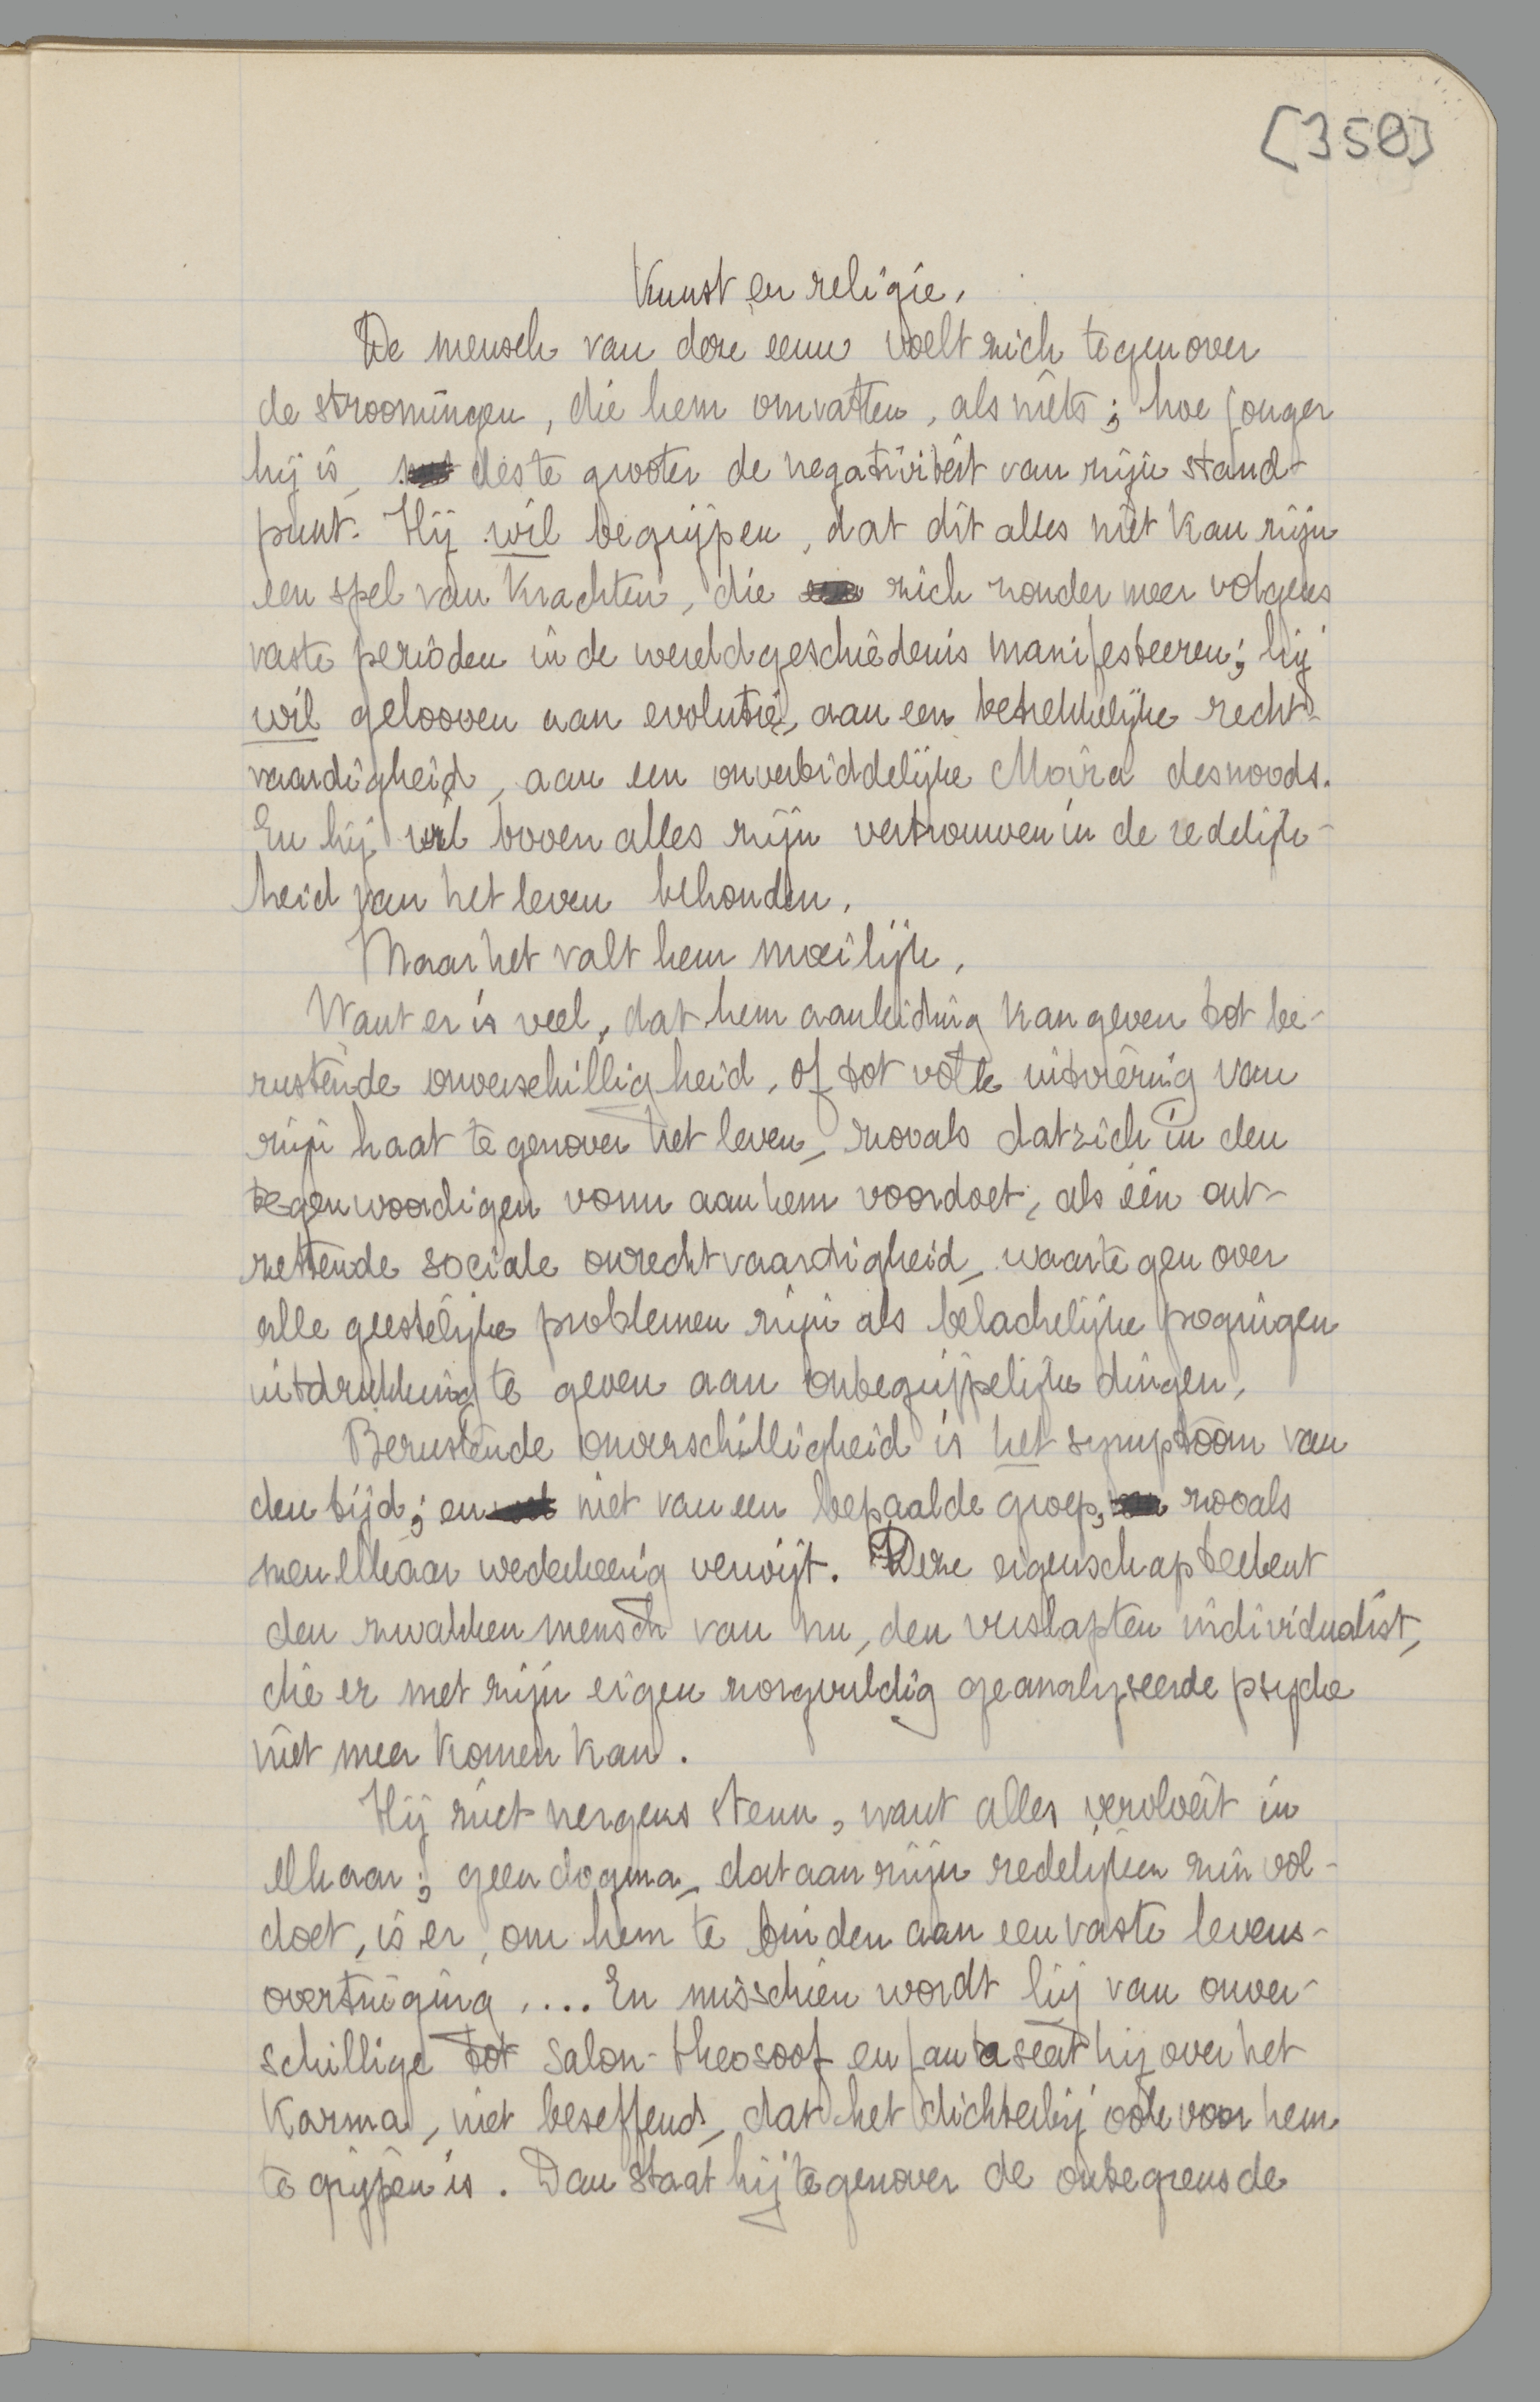 [350]
Kunst en religie.
De mensch van deze eeuw voelt zich tegenover
de stroomingen, die hem omvatten, als niets; hoe jonger
hij is, des te grooter de negativiteit van zijn stand-
punt. Hij wil begrijpen, dat dit alles niet kan zijn
een spel van krachten, die zich zonder meer volgens
vaste perioden in de wereldgeschiedenis manifesteeren; hij
wil gelooven aan evolutie, aan een betrekkelijke recht-
vaardigheid, aan een onverbiddelijke Moira desnoods.
En hij wil boven alles zijn vertrouwen in de redelijk-
heid van het leven behouden.
Maar het valt hem moeilijk.
Want er is veel, dat hem aanleiding kan geven tot be-
rustende onverschilligheid, of tot volle uitviering van
zijn haat tegenover het leven, zooals dat zich in den
tegenwoordigen vorm aan hem voordoet, als één ont-
zettende sociale onrechtvaardigheid, waartegenover
alle geestelijke problemen zijn als belachelijke pogingen
uitdrukking te geven aan onbegrijpelijke dingen.
Berustende onverschilligheid is het symptoom van
den tijd; en niet van een bepaalde groep, zooals
men elkaar wederkeerig verwijt. Deze eigenschap teekent
den zwakken mensch van nu, den verslapten individualist,
die er met zijn eigen zorgvuldig geanalyseerde psyche
niet meer komen kan.
Hij ziet nergens steun, want alles vervloeit in
elkaar; geen dogma, dat aan zijn redelijken zin vol-
doet, is er, om hem te binden aan een vaste levens-
overtuiging .... En misschien wordt hij van onver-
schillige tot salon-theosoof en fantaseert hij over het
Karma, niet beseffend, dat het dichterbij ook voor hem
te grijpen is. Dan staat hij tegenover de onbegrensde